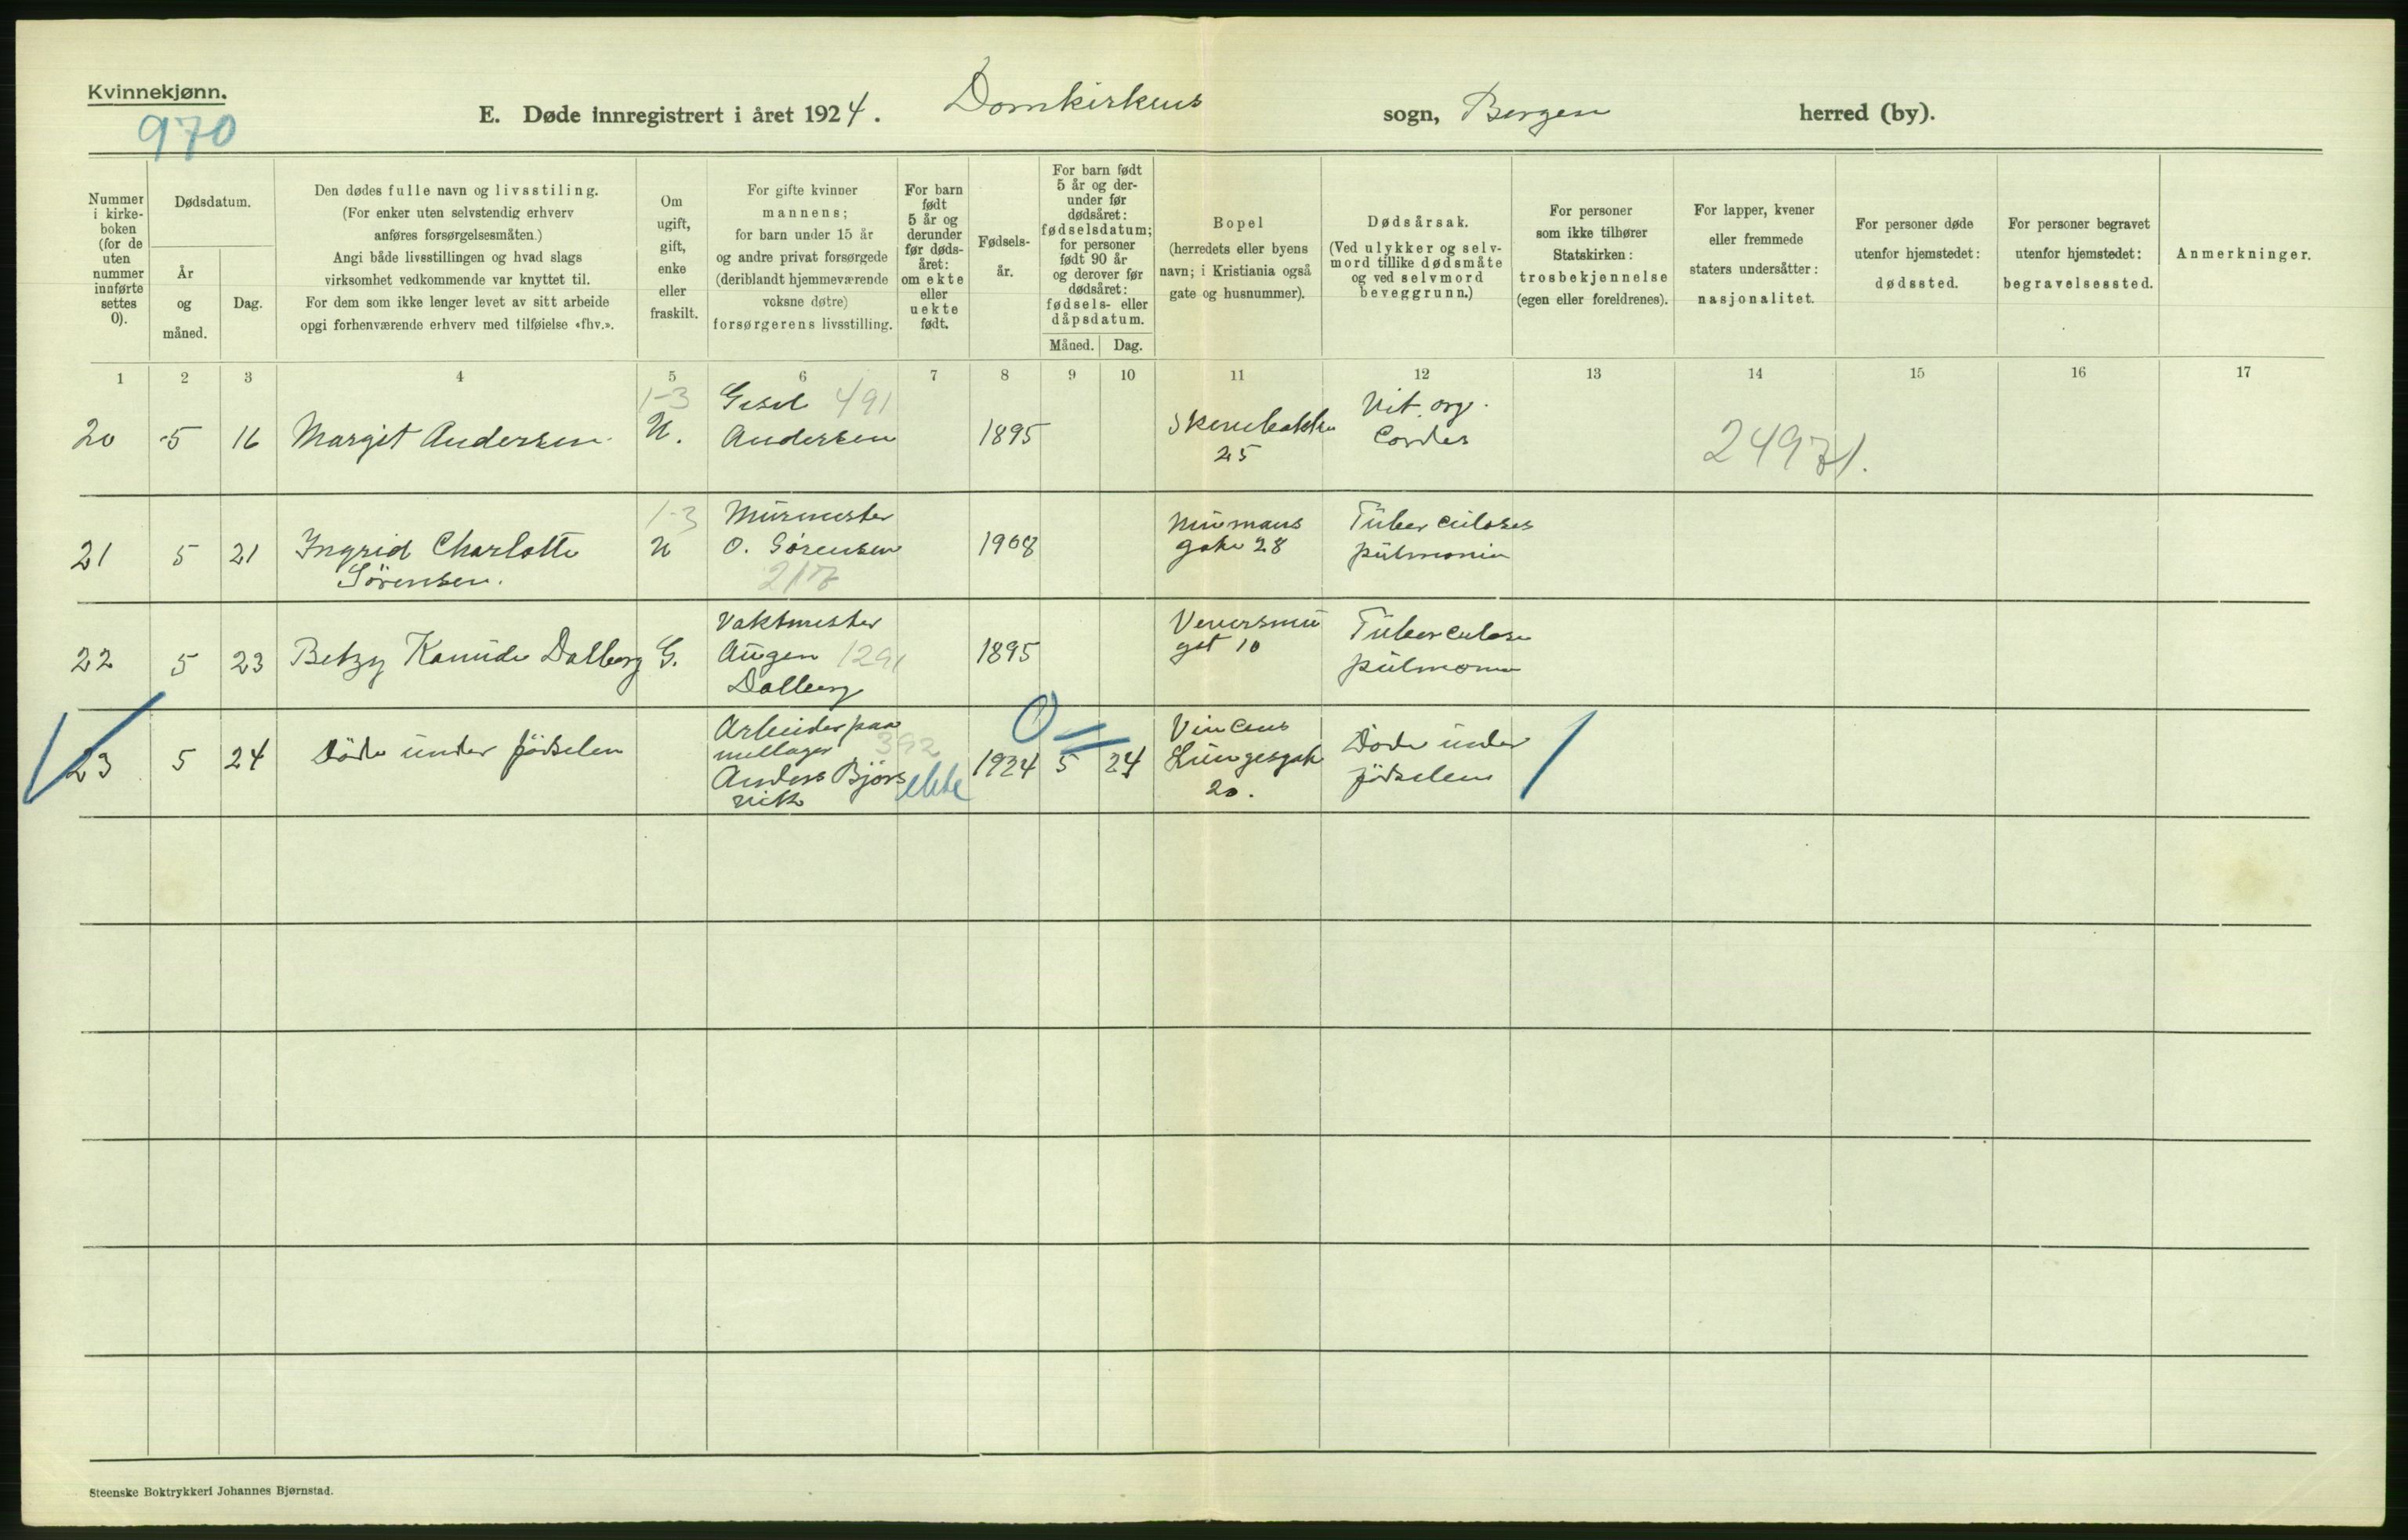 Kvinnekjønn.
970
E. Døde innregistrert i året 1924. Domkirkens sogn, Bergen herred (by).
Nummer i kirke-boken (for de uten nummer innførte settes 0).
Dødsdatum.
År og måned.
Dag.
Den dødes fulle navn og livsstiling.
(For enker uten selvstendig erhverv
anføres forsørgelsesmåten.)
Angi både livsstillingen og hvad slags
virksomhet vedkommende var knyttet til.
For dem som ikke lenger levet av sitt arbeide
opgi forhenværende erhverv med tilføielse «fhv.».
Om
ugift,
gift,
enke
eller
fraskilt.
For gifte kvinner
mannens;
for barn under 15 år
og andre privat forsørgede
(deriblandt hjemmeværende
voksne døtre)
forsørgerens livsstilling.
For barn
født
5 år og
derunder
før døds-
året:
om ekte
eller
uekte
født.
Fødsels-
år.
For barn født
5 år og der-
under før
dødsåret:
fødselsdatum;
for personer
født 90 år
og derover før
dødsåret:
fødsels- eller
dåpsdatum.
Måned. Dag.
Bopel
(herredets eller byens
navn; i Kristiania også
gate og husnummer).
Dødsårsak.
(Ved ulykker og selv-
mord tillike dødsmåte
og ved selvmord
beveggrunn.)
For personer
som ikke tilhører
Statskirken:
trosbekjennelse
(egen eller foreldrenes).
For lapper, kvener
eller fremmede
staters undersåtter:
nasjonalitet.
For personer døde
utenfor hjemstedet:
dødssted.
For personer begravet
utenfor hjemstedet:
begravelsessted.
Anmerkninger.
1 2 3 4 5 6 7 8 9 10 11 12 13 14 15 16 17
20 5 16 Margit Andersen
1-3
U.
491
Andersen
1895
25
Vit. org.
Cordis
21 5 21 Ingrid Charlotte
Sörensen.
1-3
U
Mürmester
O. Sörensen
217
1908
gate 28
Tüberculoses
pülmonin
22 5 23 Betzy Dalberg G.
Vaktmester
Aügen 1291
Dalberg
1895
10
Tüberculose
pülmonu
23 5 24 Döde ünder födselen
Arbeider paa
392
Anders Björs
vik
ekte
0
1924 5 24
Vincens
Lüngesgate
20.
Döde ünder
födselen
Steenske Boktrykkeri Johannes Bjørnstad.